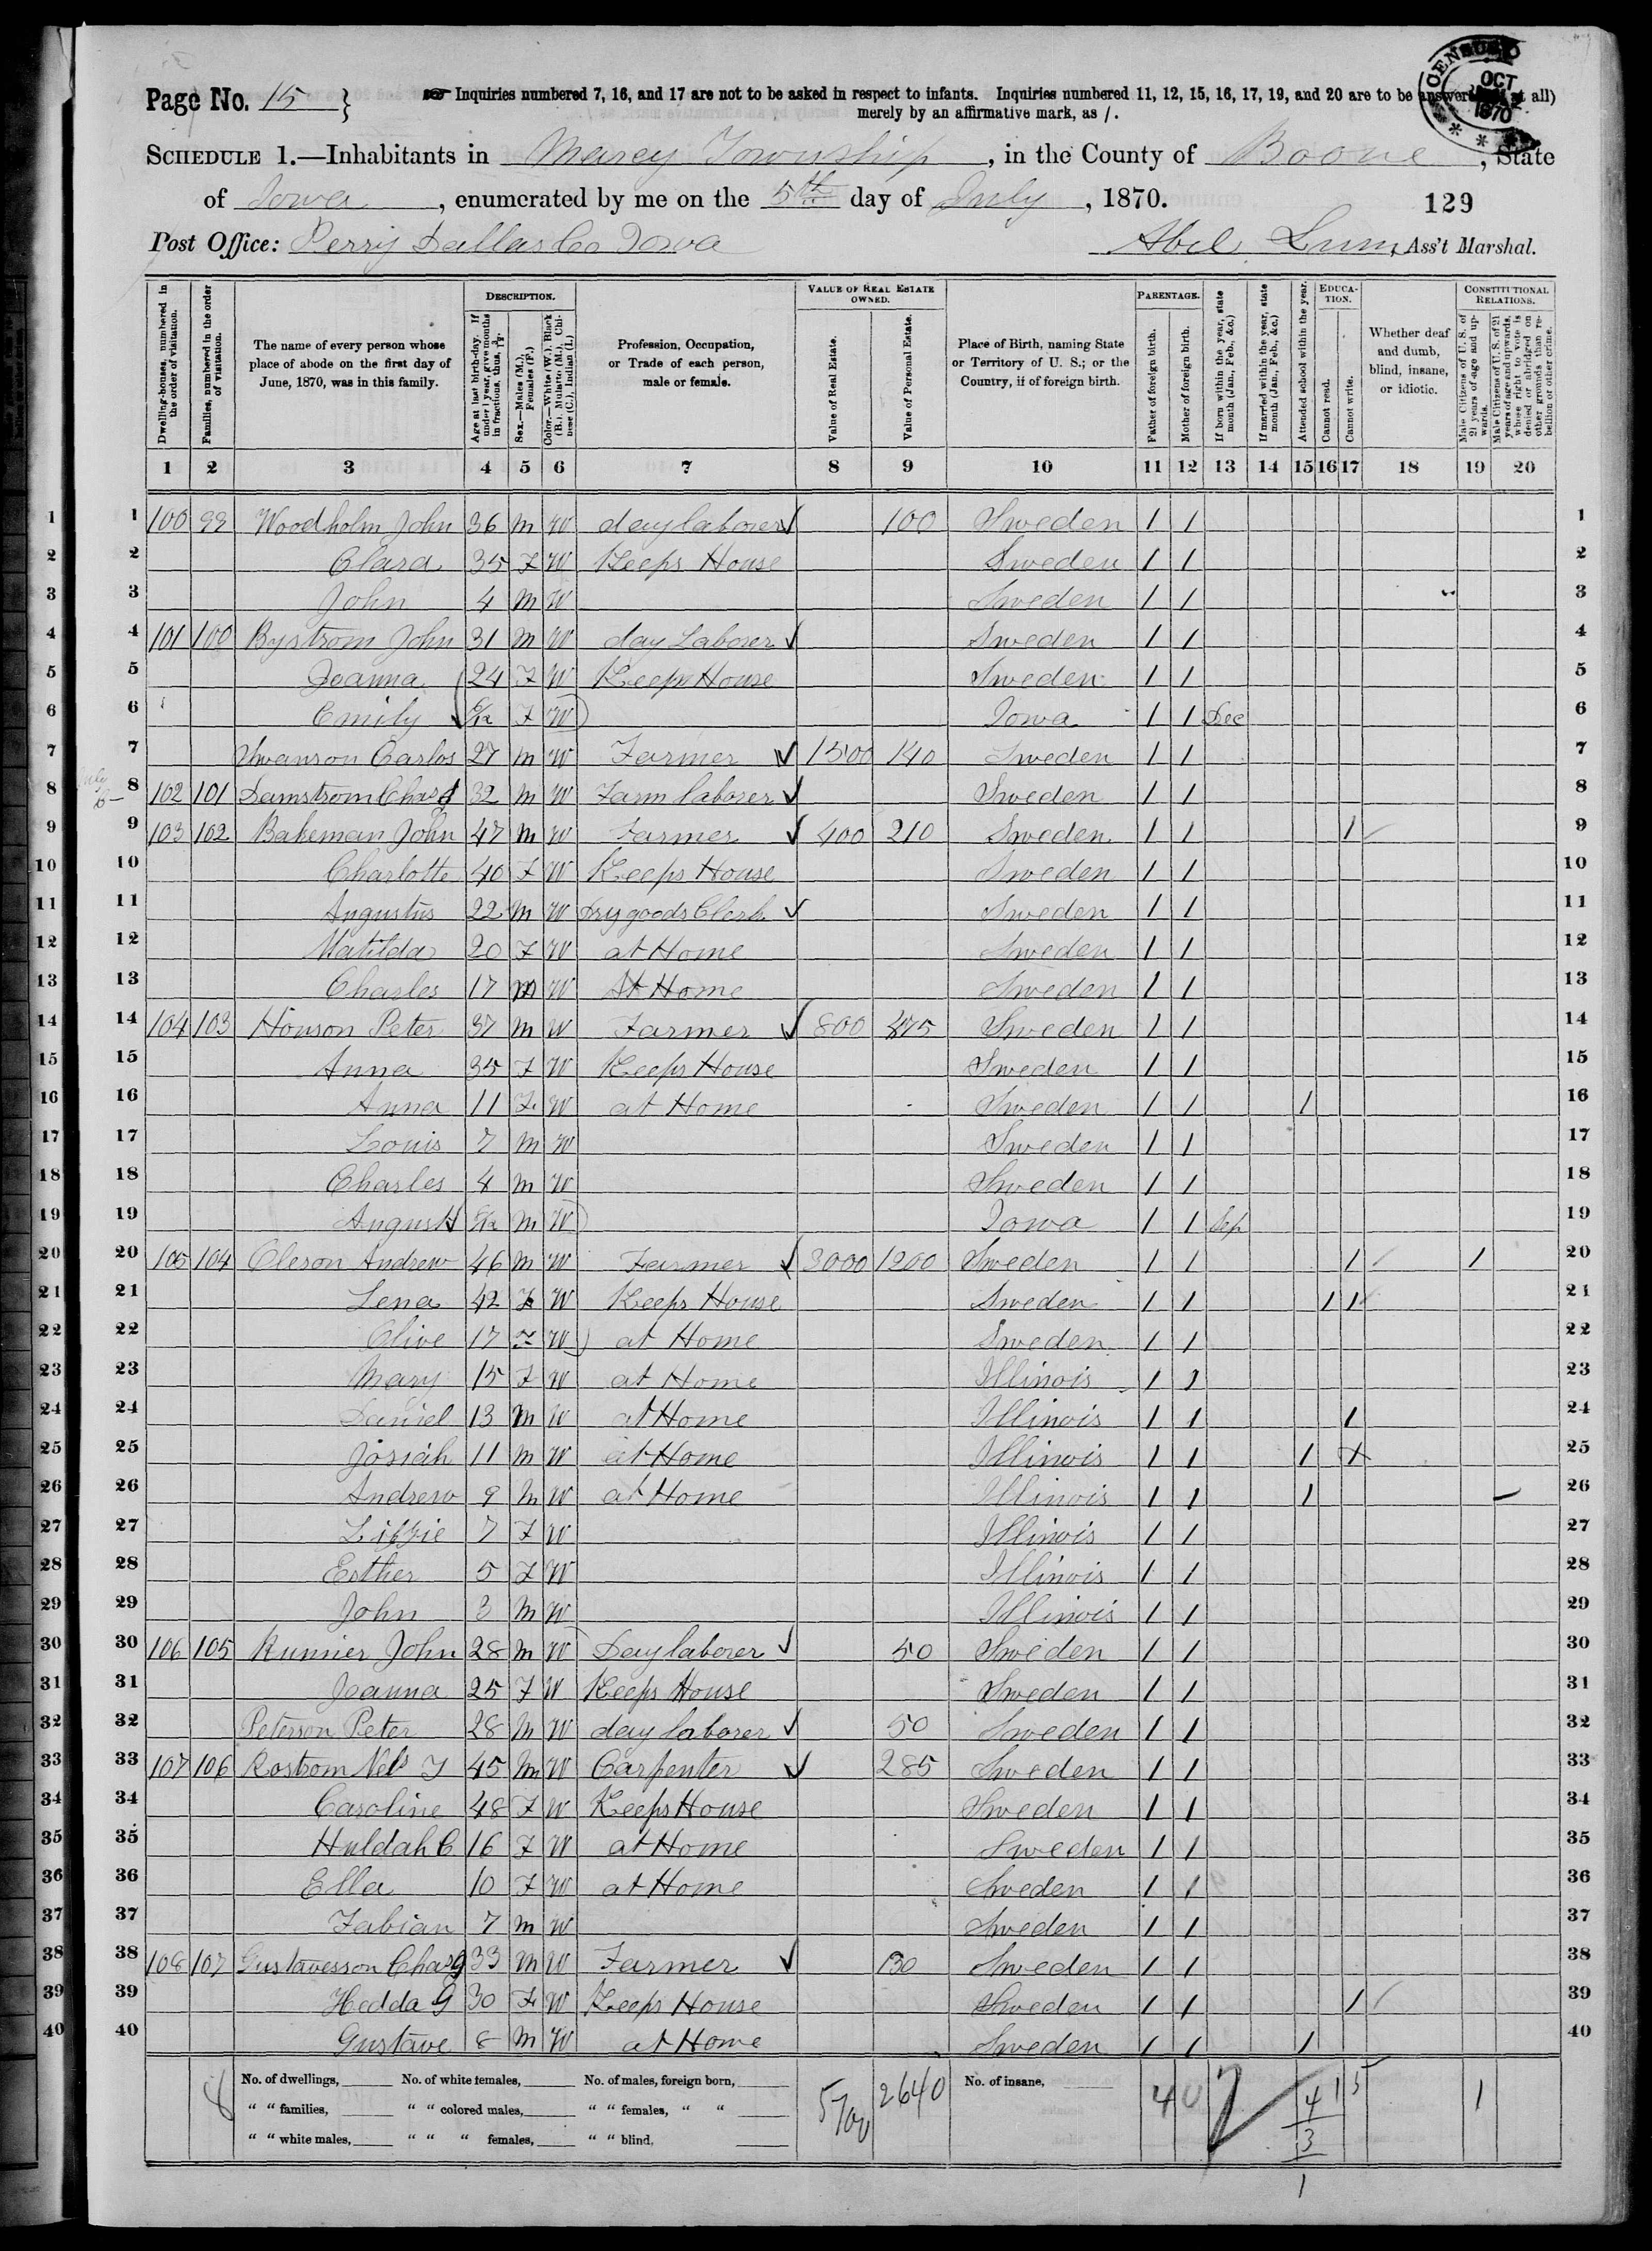 Page No. 15 } Inquiries numbered 7, 16, and 17 are not to be asked in respect to infants. Inquiries numbered 11, 12, 15, 16, 17, 19, and 20 are to be answered (if at all)
merely by an affirmative mark, as /.
CENSUS OCT 1870
SCHEDULE 1.—Inhabitants in Marcy Township, in the County of Boone, State
of Iowa, enumerated by me on the 5th day of July, 1870. 129
Post Office: Perry Dallas Co Iowa Abel Lunn, Ass't Marshal.
Dwelling-houses, numbered in the order of visitation.
Families, numbered in the order of visitation.
The name of every person whose place of abode on the first day of June, 1870, was in this family.
DESCRIPTION.
Age at last birth-day. If under 1 year, give months in fractions, thus, 3/12.
Sex.—Males (M.), Females (F.)
Color.—White (W.), Black (B.), Mulatto (M.), Chinese (C.), Indian (I.)
Profession, Occupation, or Trade of each person, male or female.
VALUE OF REAL ESTATE OWNED.
Value of Real Estate.
Value of Personal Estate.
Place of Birth, naming State or Territory of U. S.; or the Country, if of foreign birth.
PARENTAGE.
Father of foreign birth.
Mother of foreign birth.
If born within the year, state month (Jan., Feb., &c.)
If married within the year, state month (Jan., Feb., &c.)
Attended school within the year.
EDUCATION.
Cannot read.
Cannot write.
Whether deaf and dumb, blind, insane, or idiotic.
CONSTITUTIONAL RELATIONS.
Male Citizens of U. S. of 21 years of age and upwards.
Male Citizens of U. S. of 21 years of age and upwards, whose right to vote is denied or abridged on other grounds than rebellion or other crime.
1 2 3 4 5 6 7 8 9 10 11 12 13 14 15 16 17 18 19 20
1 1 100 99 Woodholm John 36 M W day laborer 100 Sweden 1 1 1
2 2 Clara 35 F W Keeps House Sweden 1 1 2
3 3 John 4 M W Sweden 1 1 3
4 4 101 100 Bystrom John 31 M W day Laborer Sweden 1 1 4
5 5 Joanna 24 F W Keeps House Sweden 1 1 5
6 6 Emily F W Iowa 1 1 Dec 6
7 7 Swanson Carlos 27 M W Farmer 1500 140 Sweden 1 1 7
8 July 6 8 102 101 Damstrom Chas 32 M W Farm laborer Sweden 1 1 8
9 9 103 102 Bakeman John 47 M W Farmer 400 210 Sweden 1 1 1 9
10 10 Charlotte 40 F W Keeps House Sweden 1 1 10
11 11 Augustus 22 M W Dry goods Clerk Sweden 1 1 11
12 12 Matilda 20 F W at Home Sweden 1 1 12
13 13 Charles 17 M W At Home Sweden 1 1 13
14 14 104 103 Honson Peter 37 M W Farmer 800 475 Sweden 1 1 14
15 15 Anna 35 F W Keeps House Sweden 1 1 15
16 16 Anna 11 F W at Home Sweden 1 1 1 16
17 17 Louis 7 M W Sweden 1 1 17
18 18 Charles 4 M W Sweden 1 1 18
19 19 August M W Iowa 1 1 Sep 19
20 20 105 104 Oleson Andrew 46 M W Farmer 3000 1200 Sweden 1 1 1 1 20
21 21 Lena 42 F W Keeps House Sweden 1 1 1 1 21
22 22 Olive 17 F W at Home Sweden 1 1 22
23 23 Mary 15 F W at Home Illinois 1 1 23
24 24 Daniel 13 M W at Home Illinois 1 1 1 24
25 25 Josiah 11 M W at Home Illinois 1 1 1 25
26 26 Andrew 9 M W at Home Illinois 1 1 1 26
27 27 Lizzie 7 F W Illinois 1 1 27
28 28 Esther 5 F W Illinois 1 1 28
29 29 John 3 M W Illinois 1 1 29
30 30 106 105 Runnier John 28 M W Day laborer 50 Sweden 1 1 30
31 31 Joanna 25 F W Keeps House Sweden 1 1 31
32 32 Peterson Peter 28 M W day laborer 50 Sweden 1 1 32
33 33 107 106 Rostrom Nels J 45 M W Carpenter 285 Sweden 1 1 33
34 34 Caroline 48 F W Keeps House Sweden 1 1 34
35 35 Huldah C 16 F W at Home Sweden 1 1 35
36 36 Ella 10 F W at Home Sweden 1 1 36
37 37 Fabian 7 M W Sweden 1 1 37
38 38 108 107 Gustavesson Chas G 33 M W Farmer 130 Sweden 1 1 38
39 39 Hedda G 30 F W Keeps House Sweden 1 1 1 39
40 40 Gustave 8 M W at Home Sweden 1 1 1 40
No. of dwellings, No. of white females, No. of males, foreign born, 5700 2640 No. of insane, 40 2 4 1 5 1
" " families, " " colored males, " " females, " " 3
" " white males, " " " females, " " blind, 1